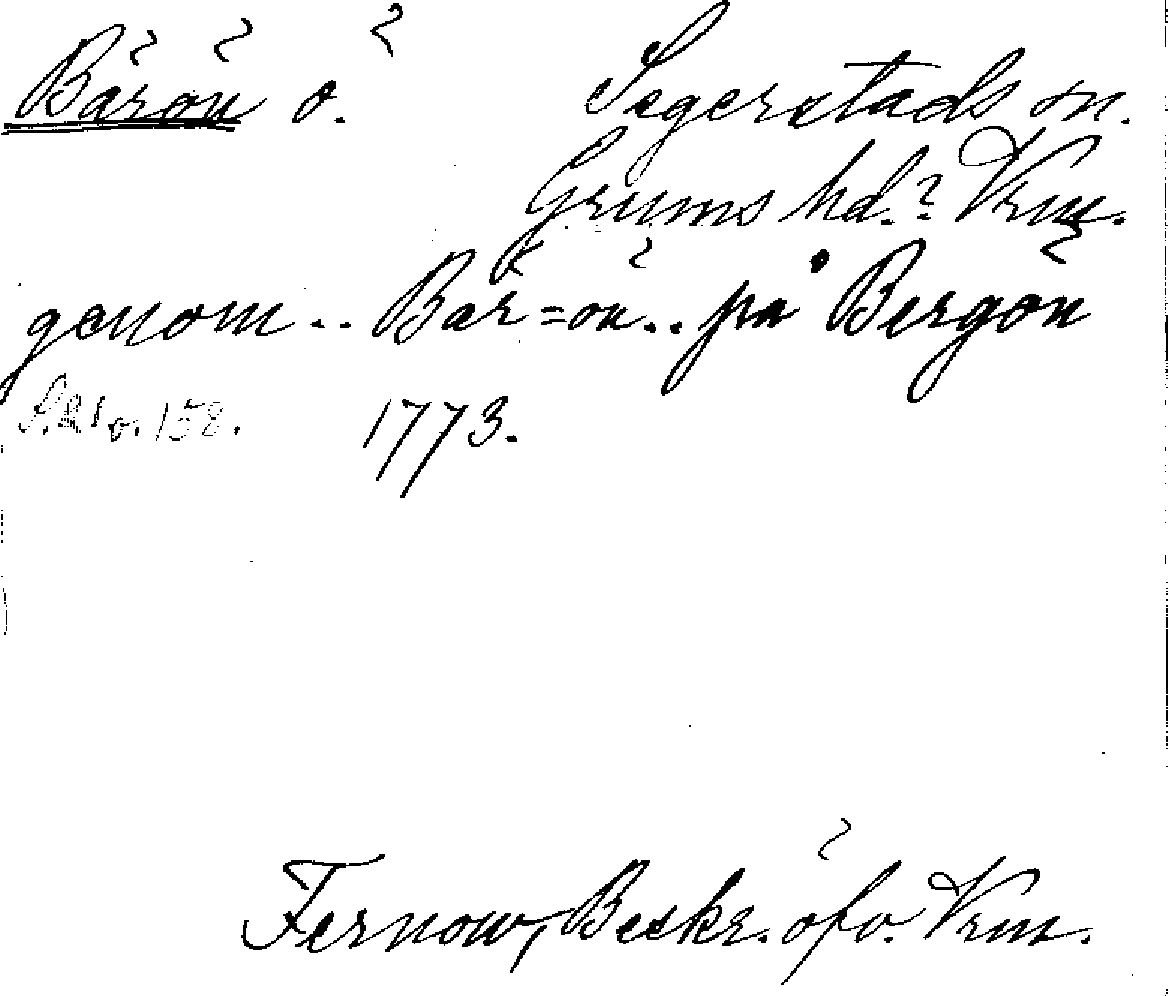 Bärön ö. Segerstads sn.
Grums hd.? Vrm.
genom .. Bär=ön .. på Bergön
158. 1773.
Fernow, Beskr. öfv. Vrm.